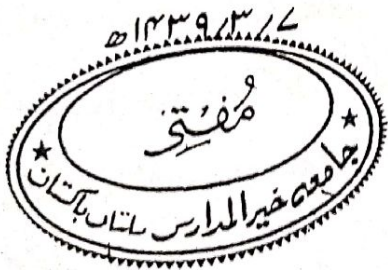 ۷/۳/۱۴۳۹ھ
مُفتی
جامعہ خیر المدارس ملتان پاکستان